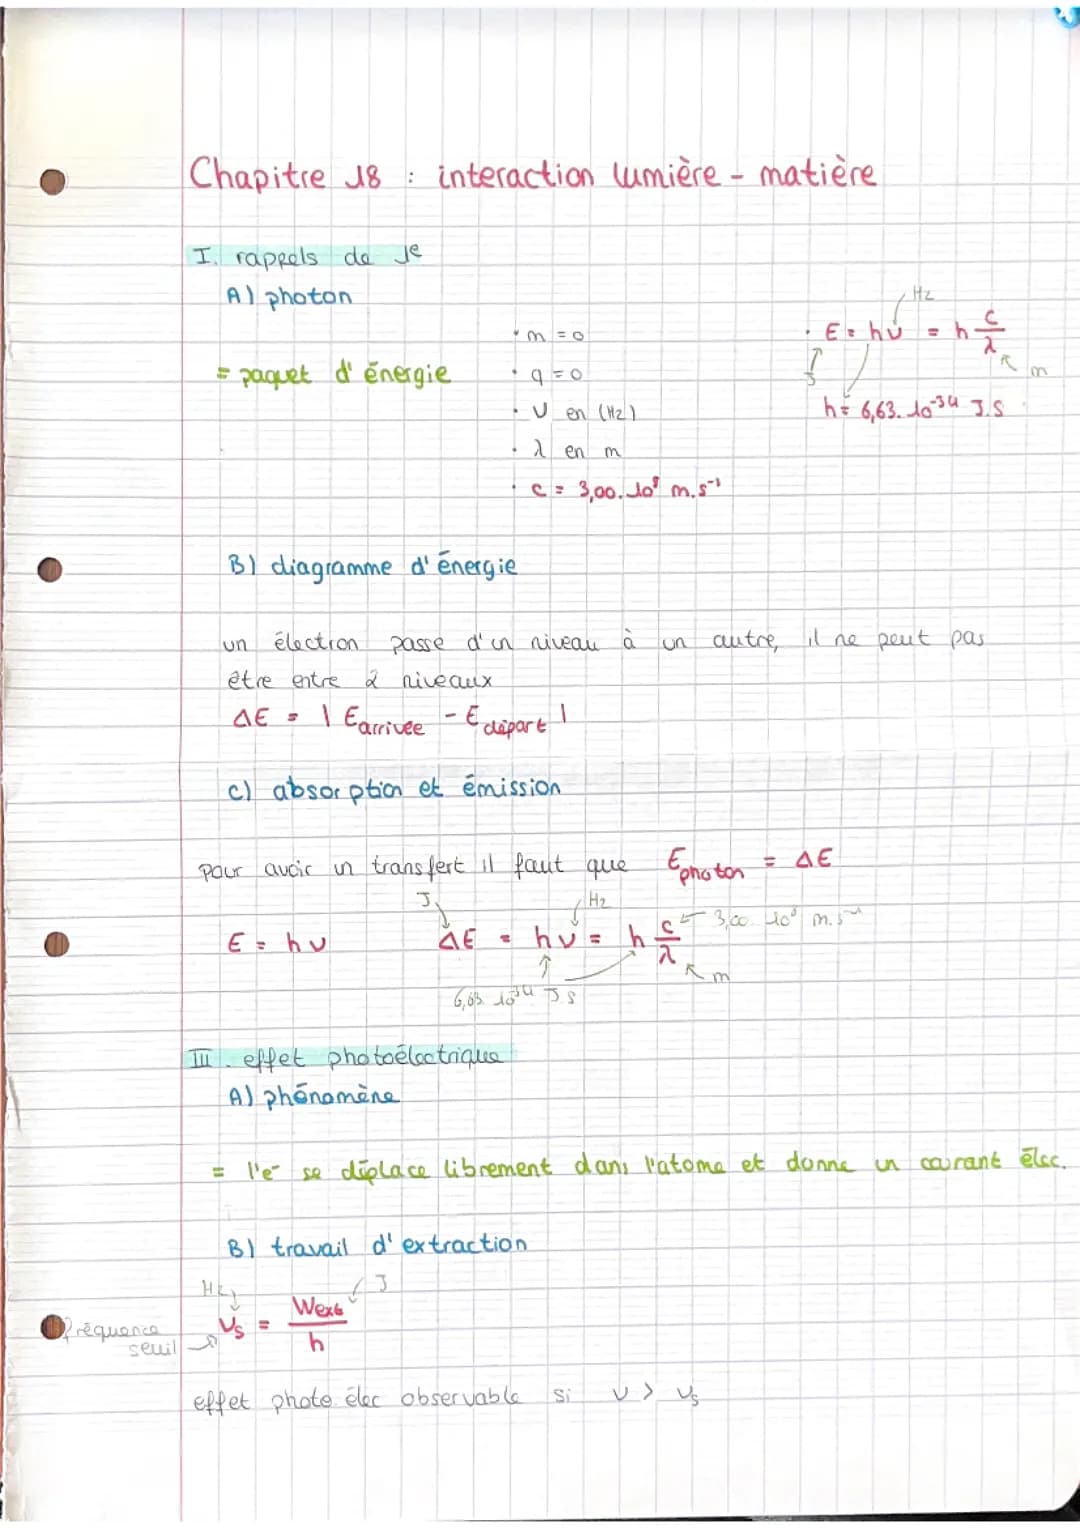 Chapitre 18 : interaction lumière - matière
I. rappels de 1e
A) photon
= paquet d'énergie
• m = 0
• q = 0
• ν en (Hz)
• λ en m
• c = 3,00.10⁸ m.s⁻¹
Hz
• E = hν = h c/λ
J
m
h = 6,63.10⁻³⁴ J.S
B) diagramme d'énergie
un électron passe d'un niveau à un autre, il ne peut pas
être entre 2 niveaux
ΔE = | Earrivée - Edépart |
C) absorption et émission
pour avoir un transfert il faut que Ephoton = ΔE
J
Hz
E = hν
ΔE = hν = h c/λ
3,00.10⁸ m.s⁻¹
m
6,63.10⁻³⁴ J.S
III. effet photoélectrique
A) phénomène
= l'e⁻ se déplace librement dans l'atome et donne un courant élec.
B) travail d'extraction
Hz
J
νs = Wext/h
fréquence
seuil
effet photo élec observable si ν > νs